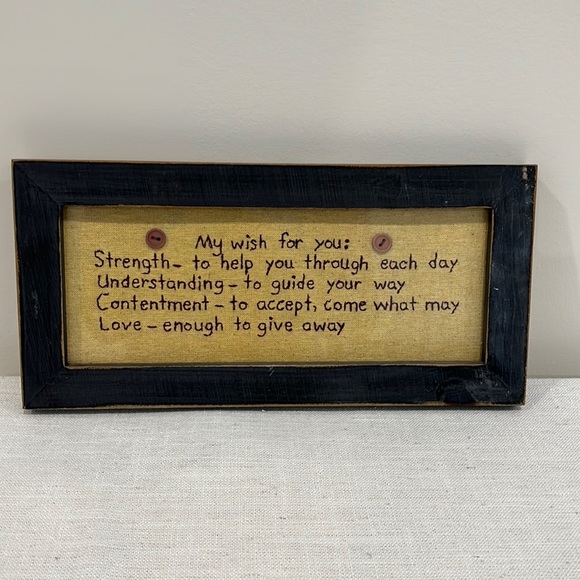 My wish for you:
Strength- to help you through each day
Understanding- to guide your way
Contentment- to accept, come what may
Love- enough to give away